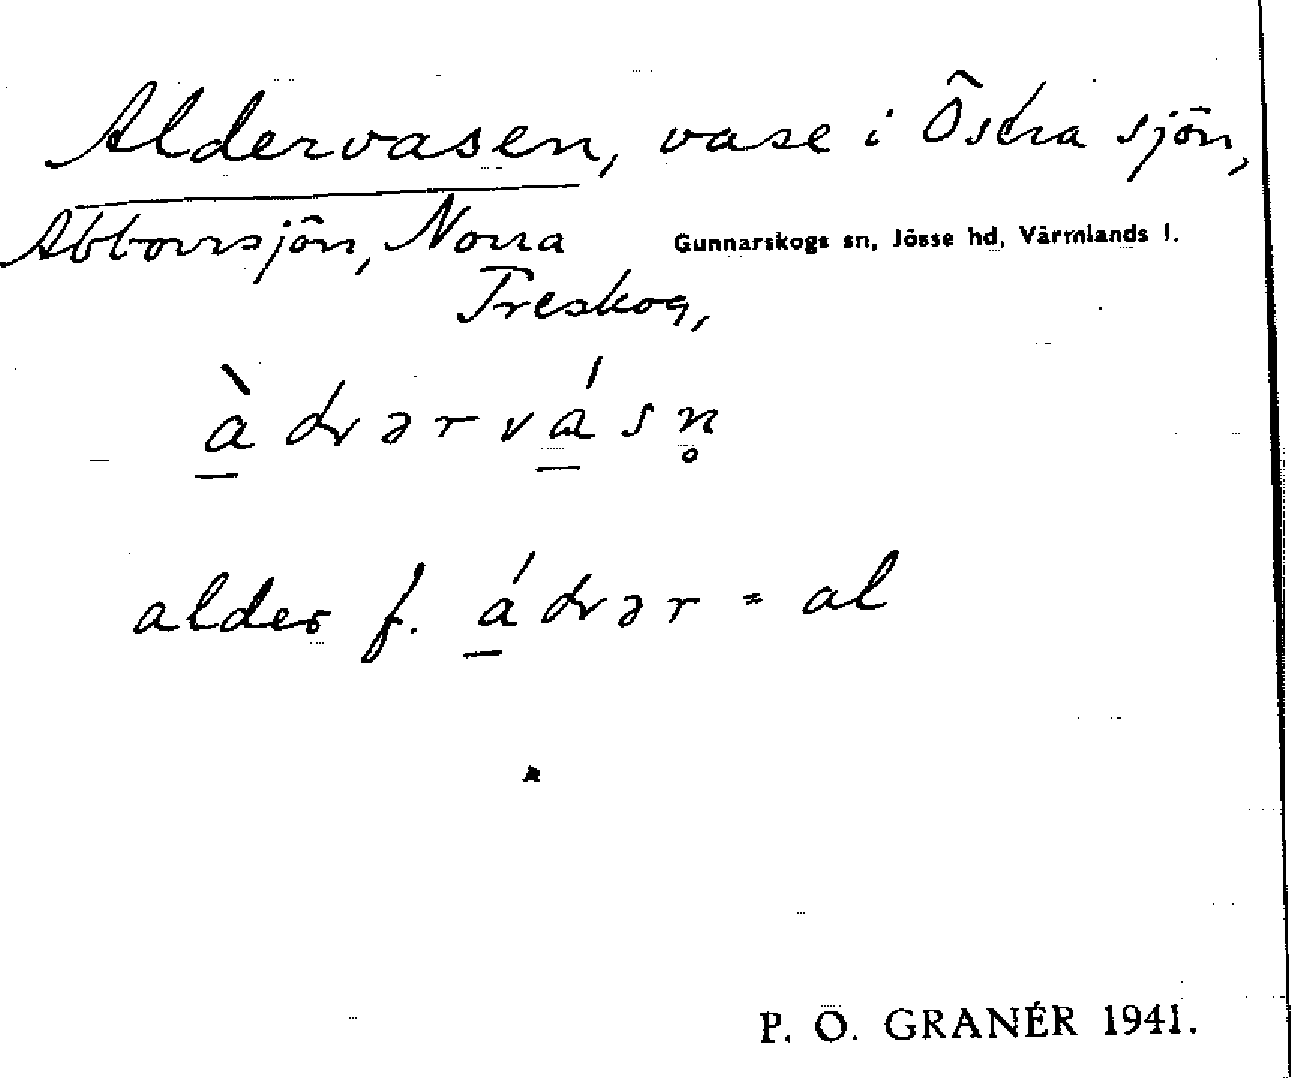 Aldervasen, vase i Östra sjön,
Abborrsjön, Norra
Gunnarskogs sn, Jösse hd, Värmlands l.
Treskog,
àdrərvásn̥
alder f. ádrər = al
P. Ö. GRANÉR 1941.